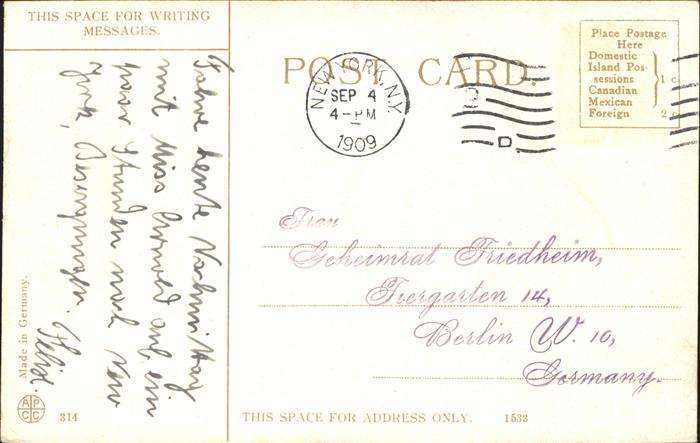 THIS SPACE FOR WRITING
MESSAGES.
POST CARD.
NEW YORK, N.Y.
SEP 4
4-PM
1909
D
Place Postage
Here
Domestic
Island Pos-
sessions
Canadian
Mexican
1 c.
Foreign 2 c.
Fahre heute Nachmittag
mit Miss auf ein
paar Stunden nach New
York,
Felix.
Frau
Geheimrat Friedheim,
Tiergarten 14,
Berlin W. 10,
Germany.
Made in Germany.
A P
C C
314
THIS SPACE FOR ADDRESS ONLY.
1533